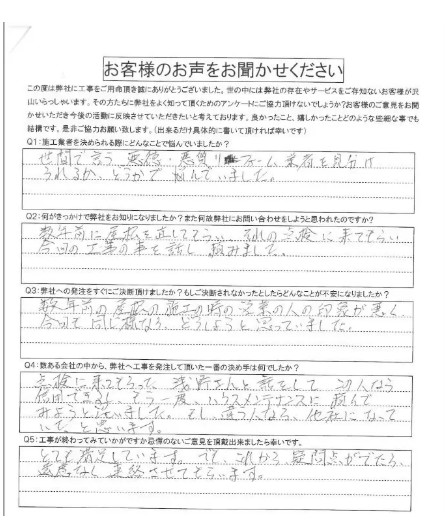 お客様のお声をお聞かせください
この度は弊社に工事をご用命頂き誠にありがとうございました。世の中には弊社の存在やサービスをご存知ないお客様が沢
山いらっしゃいます。その方たちに弊社をよく知って頂くためのアンケートにご協力頂けないでしょうか?お客様のご意見をお聞
かせいただき今後の活動に反映させていただきたいと考えております。良かったこと、嬉しかったことどのような些細な事でも
結構です。是非ご協力お願い致します。(出来るだけ具体的に書いて頂ければ幸いです)
Q1:施工業者を決められる際にどんなことで悩んでいましたか?
世間で言う 悪徳・悪質リフォーム業者を見分け
られるか、どうかで 悩んでいました。
Q2:何がきっかけで弊社をお知りになりましたか?また何故弊社にお問い合わせをしようと思われたのですか?
数年前に屋根を直してもらい、それの点検に来てもらい
今回の工事の事を話し 頼みました。
Q3:弊社への発注をすぐにご決断頂けましたか?もしご決断されなかったとしたらどんなことが不安になりましたか?
数年前の屋根の施工の時の営業の人の印象が悪く、
今回も同じ様なら、どうしようと思っていました。
Q4:数ある会社の中から、弊社へ工事を発注して頂いた一番の決め手は何でしたか?
点検に来てもらった 浅野さんと話をして この人なら
信用できるし、もう一度、ハウスメンテナンスに頼んで
みようと思いました。もし、違う人なら、他社になって
いた、と思います。
Q5:工事が終わってみていかがですか忌憚のないご意見を頂戴出来ましたら幸いです。
とても満足しています。で、これから疑問点がでたら、
遠慮なく連絡させてもらいます。